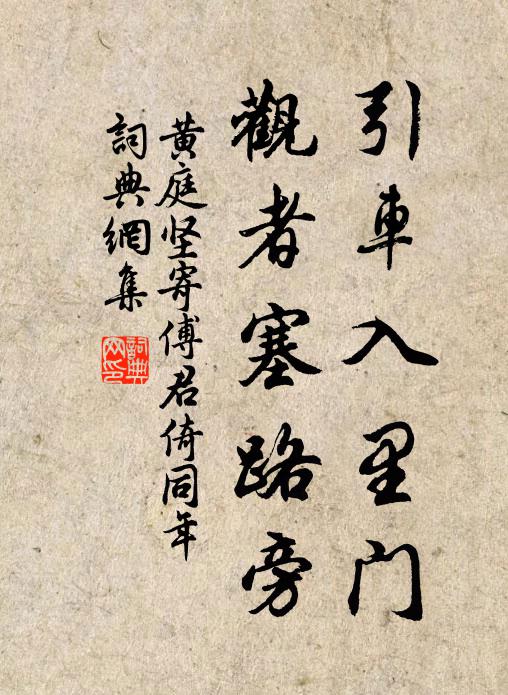 引車入里門
觀者塞路旁
黄庭坚寄傅君倚同年
詞典網集
詞典網印